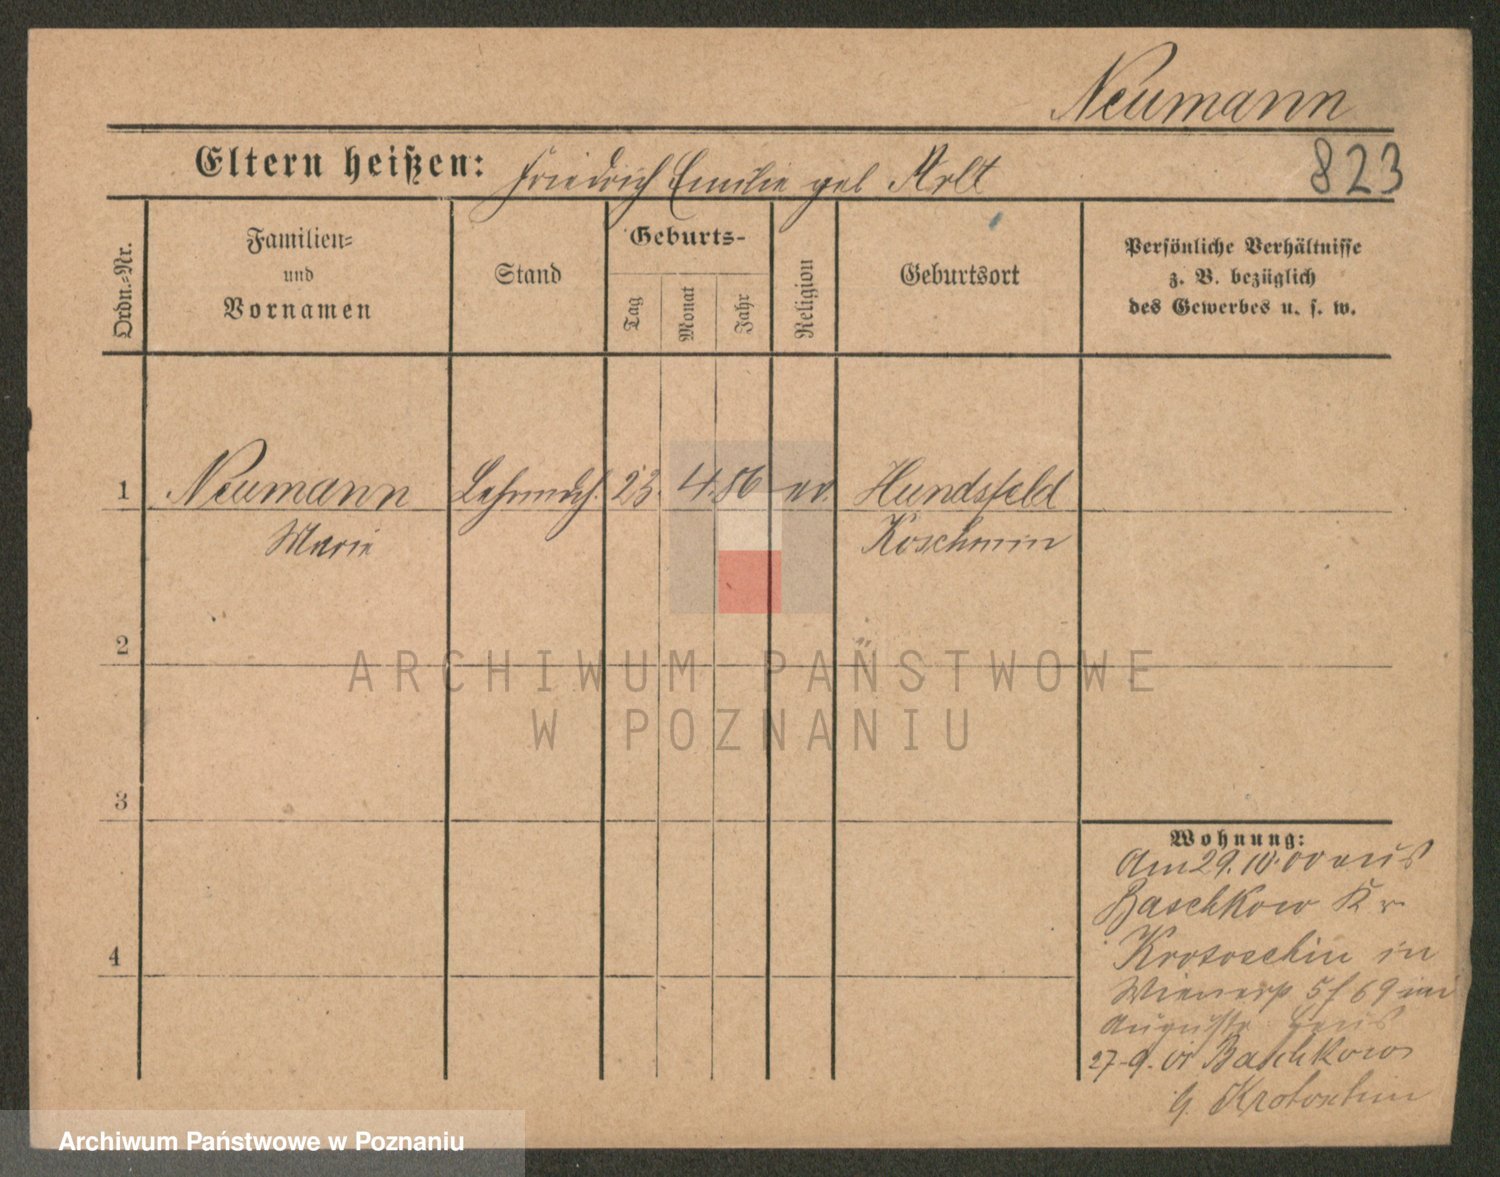 Neumann
Eltern heißen: Friedrich Emilie geb Arlt
823
Ordn.-Nr.
Familien-
und
Vornamen
Stand
Geburts-
Tag
Monat
Jahr
Religion
Geburtsort
Persönliche Verhältnisse
z. B. bezüglich
des Gewerbes u. s. w.
1 Neumann 23. 4. 86 ev. Hundsfeld
Marie Koschmin
2
ARCHIWUM PAŃSTWOWE
W POZNANIU
3
Wohnung:
Am 29. 10. 00 aus
Baschkow Kr
4
Krotoschin in
69 bei
27-9. 01 Baschkow
Krotoschin
Archiwum Państwowe w Poznaniu